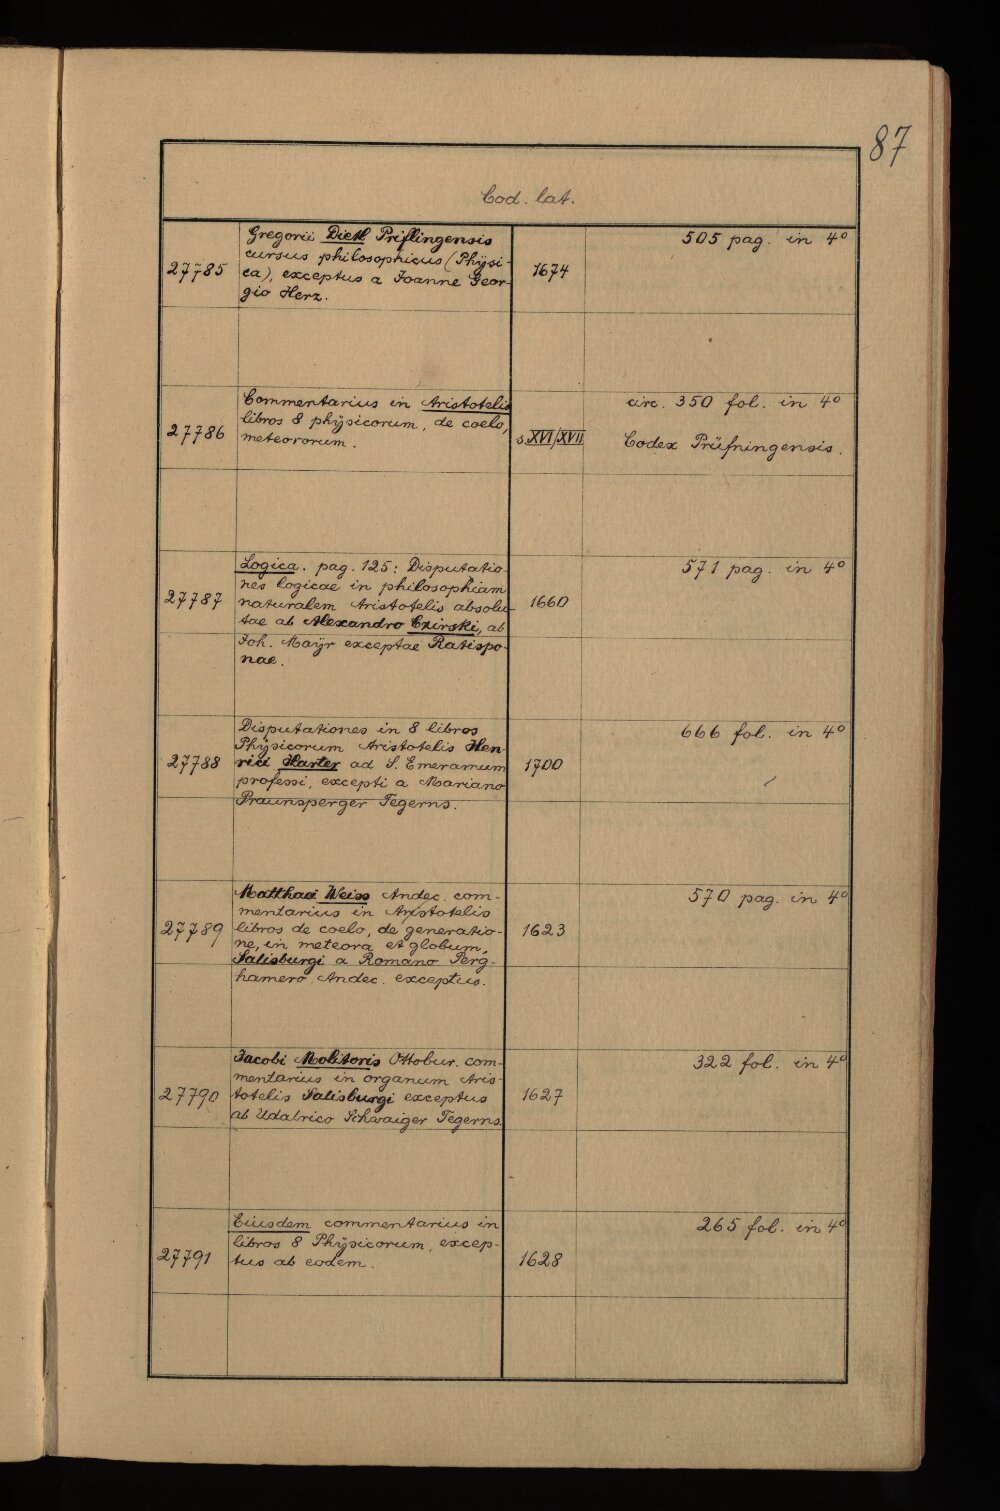 87
Cod. lat.
27785
Gregorii Dietl Priflingensis
cursus philosophicus (Physi-
ca), exceptus a Joanne Geor-
gio Herz.
1674
505 pag. in 4°
27786
Commentarius in Aristotelis
libros 8 physicorum, de coelo,
meteororum.
s. XVI/XVII
circ. 350 fol. in 4°
Codex Prüfningensis.
27787
Logica. pag. 125: Disputatio-
nes logicae in philosophiam
naturalem Aristotelis absolu-
tae ab Alexandro Czirski, ab
Joh. Mayr exceptae Ratispo-
nae.
1660
571 pag. in 4°
27788
Disputationes in 8 libros
Physicorum Aristotelis Hen-
rici Harter ad S. Emeramum
professi, excepti a Mariano
Praunsperger Tegerns.
1700
666 fol. in 4°
27789
Matthaei Weiss Andec. com-
mentarius in Aristotelis
libros de coelo, de generatio-
ne, in meteora et globum,
Salisburgi a Romano Perg-
hamero Andec. exceptus.
1623
570 pag. in 4°
27790
Jacobi Molitoris Ottobur. com-
mentarius in organum Aris-
totelis Salisburgi exceptus
ab Udalrico Schwaiger Tegerns.
1627
322 fol. in 4°
27791
Eiusdem commentarius in
libros 8 Physicorum, excep-
tus ab eodem.
1628
265 fol. in 4°